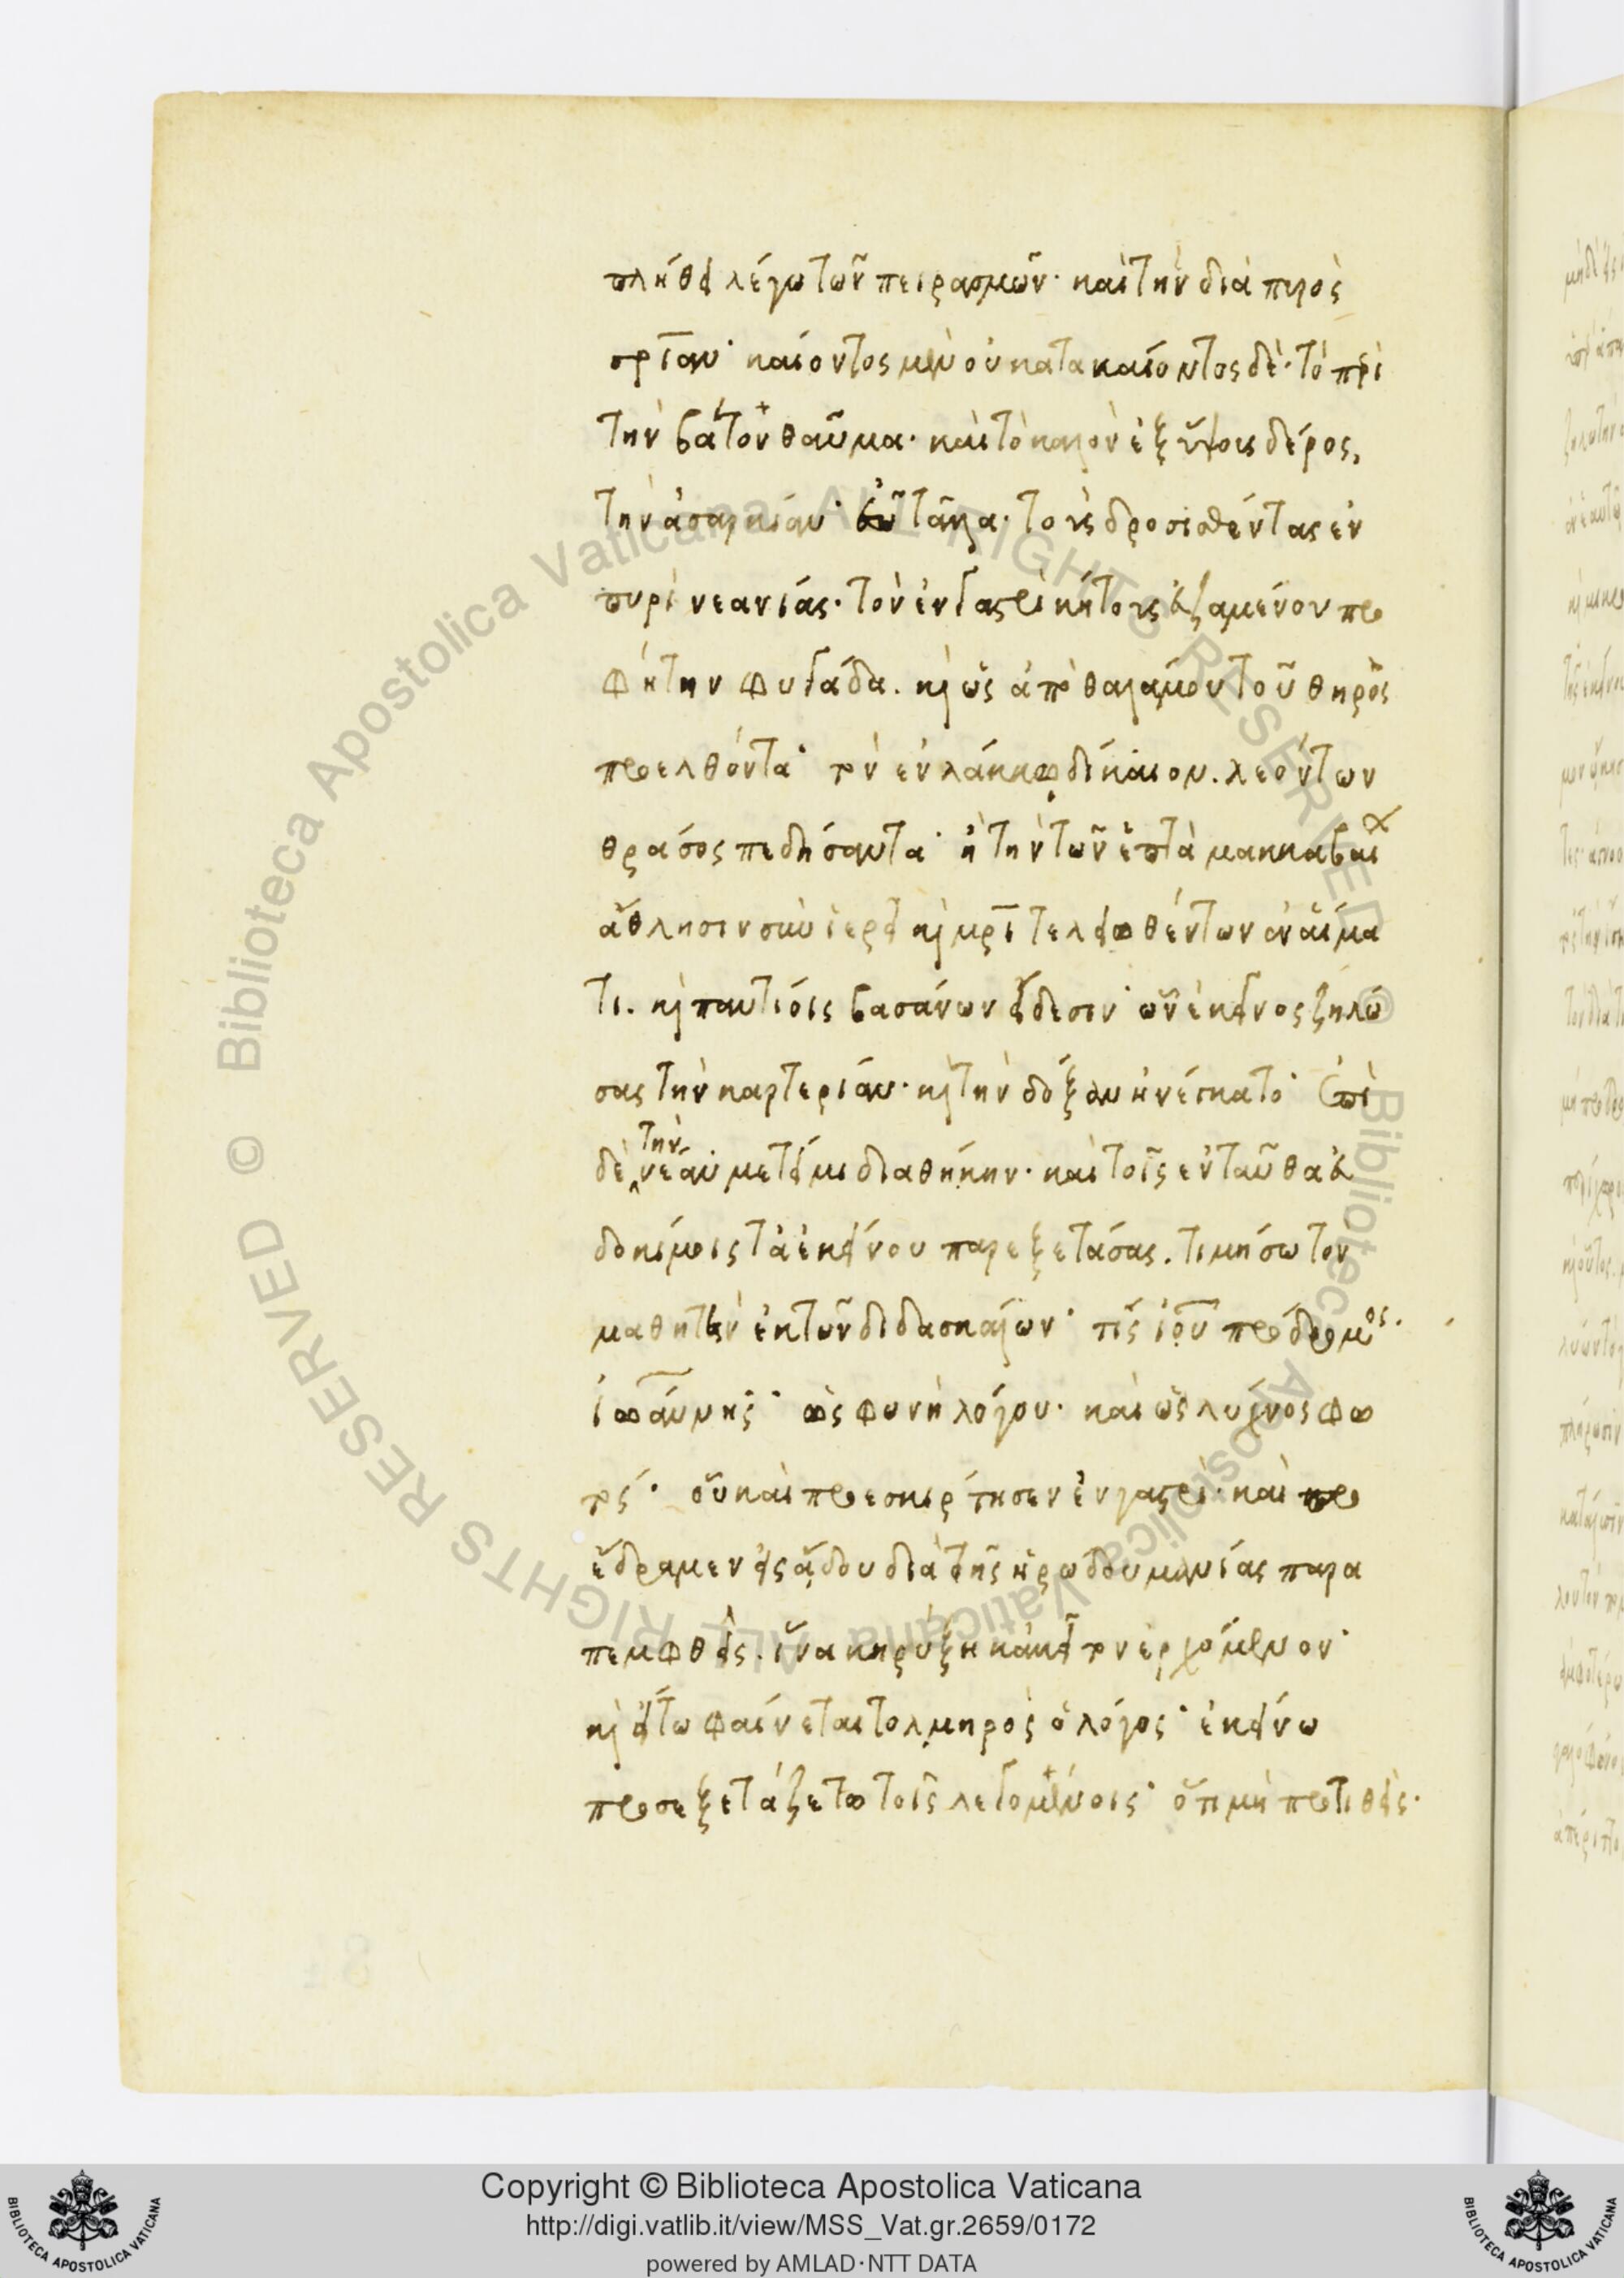 πλήθει λέγω τῶν πειρασμῶν· καὶ τὴν διὰ πυρὸς
σρίαν· καίοντος μὲν οὐ κατακαίοντος δὲ· τὸ περὶ
τὴν βάτον θαῦμα· καὶ τὸ καλὸν ἐξ ὕψους δέρος,
τὴν ἀσαρκίαν· ἐῶ τἆλλα· τοὺς δροσισθέντας ἐν
πυρὶ νεανίας· τὸν ἐν γαστρὶ κήτους εὐξαμένον προ
φήτην φυγάδα. καὶ ὡς ἀπὸ θαλάμου τοῦ θηρὸς
προελθόντα· τὸν ἐν λάκκῳ δίκαιον. λεόντων
θράσος πεδήσαντα· ἢ τὴν τῶν ἑπτὰ μακκαβαί
ἄθλησιν σὺν ἱερεῖ καὶ μρὶ τελειωθέντων ἐν αἵμα
τι. καὶ παντίοις βασάνων εἴδεσιν· ὧν ἐκεῖνος ζηλώ
σας τὴν καρτερίαν· καὶ τὴν δόξαν ἠνέγκατο· Ἐπὶ
δὲ τὴν νέαν μέτειμι διαθήκην· καὶ τοῖς ἐνταῦθα εὐ
δοκίμοις τὰ ἐκείνου παρεξετάσας. τιμήσω τὸν
μαθητὴν ἐκ τῶν διδασκάλων· τίς ἰῦ πρόδρομος·
ἰωάννης· ὡς φωνὴ λόγου· καὶ ὡς λύχνος φω
τός· οὗ καὶ προεσκίρτησεν ἐν γαστρί· καὶ προ
έδραμεν εἰς ᾅδου διὰ τῆς ἡρώδου μανίας παρα
πεμφθείς. ἵνα κηρύξῃ κἀκεῖ τὸν ἐρχόμενον·
καὶ εἴ τω φαίνεται τολμηρὸς ὁ λόγος· ἐκείνω
προσεξεταζέτω τοῖς λεγομένοις· ὅτι μὴ προτιθεὶς·
Copyright © Biblioteca Apostolica Vaticana
http://digi.vatlib.it/view/MSS_Vat.gr.2659/0172
powered by AMLAD·NTT DATA
BIBLIOTECA APOSTOLICA VATICANA
BIBLIOTECA APOSTOLICA VATICANA
© Biblioteca Apostolica Vaticana ALL RIGHTS RESERVED
© Biblioteca Apostolica Vaticana ALL RIGHTS RESERVED